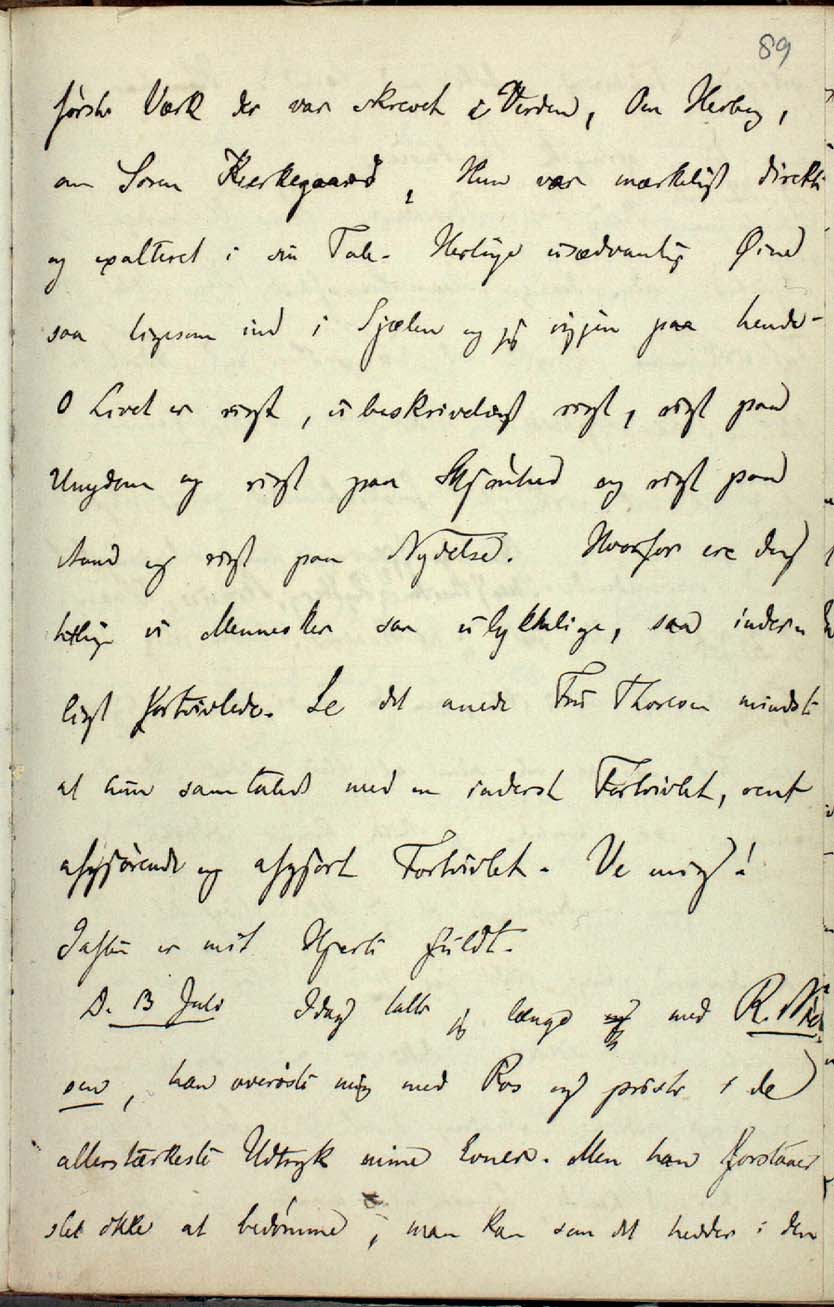 89
første Værk der var skrevet i Verden, Om Herberg,
om Søren Kierkegaard, Hun var mærkeligt direkte
og exalteret i sin Tale. Herlige usædvanlig Øine
saa ligesom ind i Sjælen og jeg igjen paa hende.
O Livet er rigt, ubeskriveligt rigt, rigt paa
Ungdom og rigt paa Skjønhed og rigt paa
Aand og rigt paa Nydelse. Hvorfor ere dog
vi Mennesker saa ulykkelige, saa inder-
ligt fortvivlede. Le det anede Fru Thoresen mindst
at hun samtalede med en inderst Fortvivlet, rent
afgjørende og afgjort Fortvivlet. Ve mig!
Iaften er mit Hjerte fuldt.
D. 13 Juli Idag talte jeg længe med R. Niel
sen, han overøste mig med Ros og priste i de
allerstærkeste Udtryk mine Evner. Men han forstaaer
slet ikke at bedømme, man kan som det hedder i den